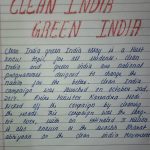 CLEAN INDIA
GREEN INDIA
Clean India green India essay is a must
know topic for all students clean
India and green India are national
programmes designed to change the
nation for the better clean India
campaign was launched on October 2nd,
2014. Prime Minister Narendra Modi
kicked off the campaign by cleaning
the road. This campaign was the large-
est ever, such as it
is also known as the Swachh Bharat
Abhiyan or the clean India movement